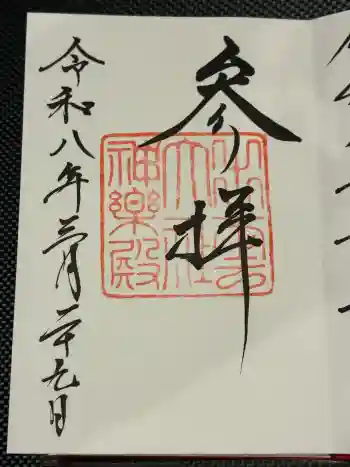 参拝
出雲
大社
神樂殿
令和八年三月二十九日